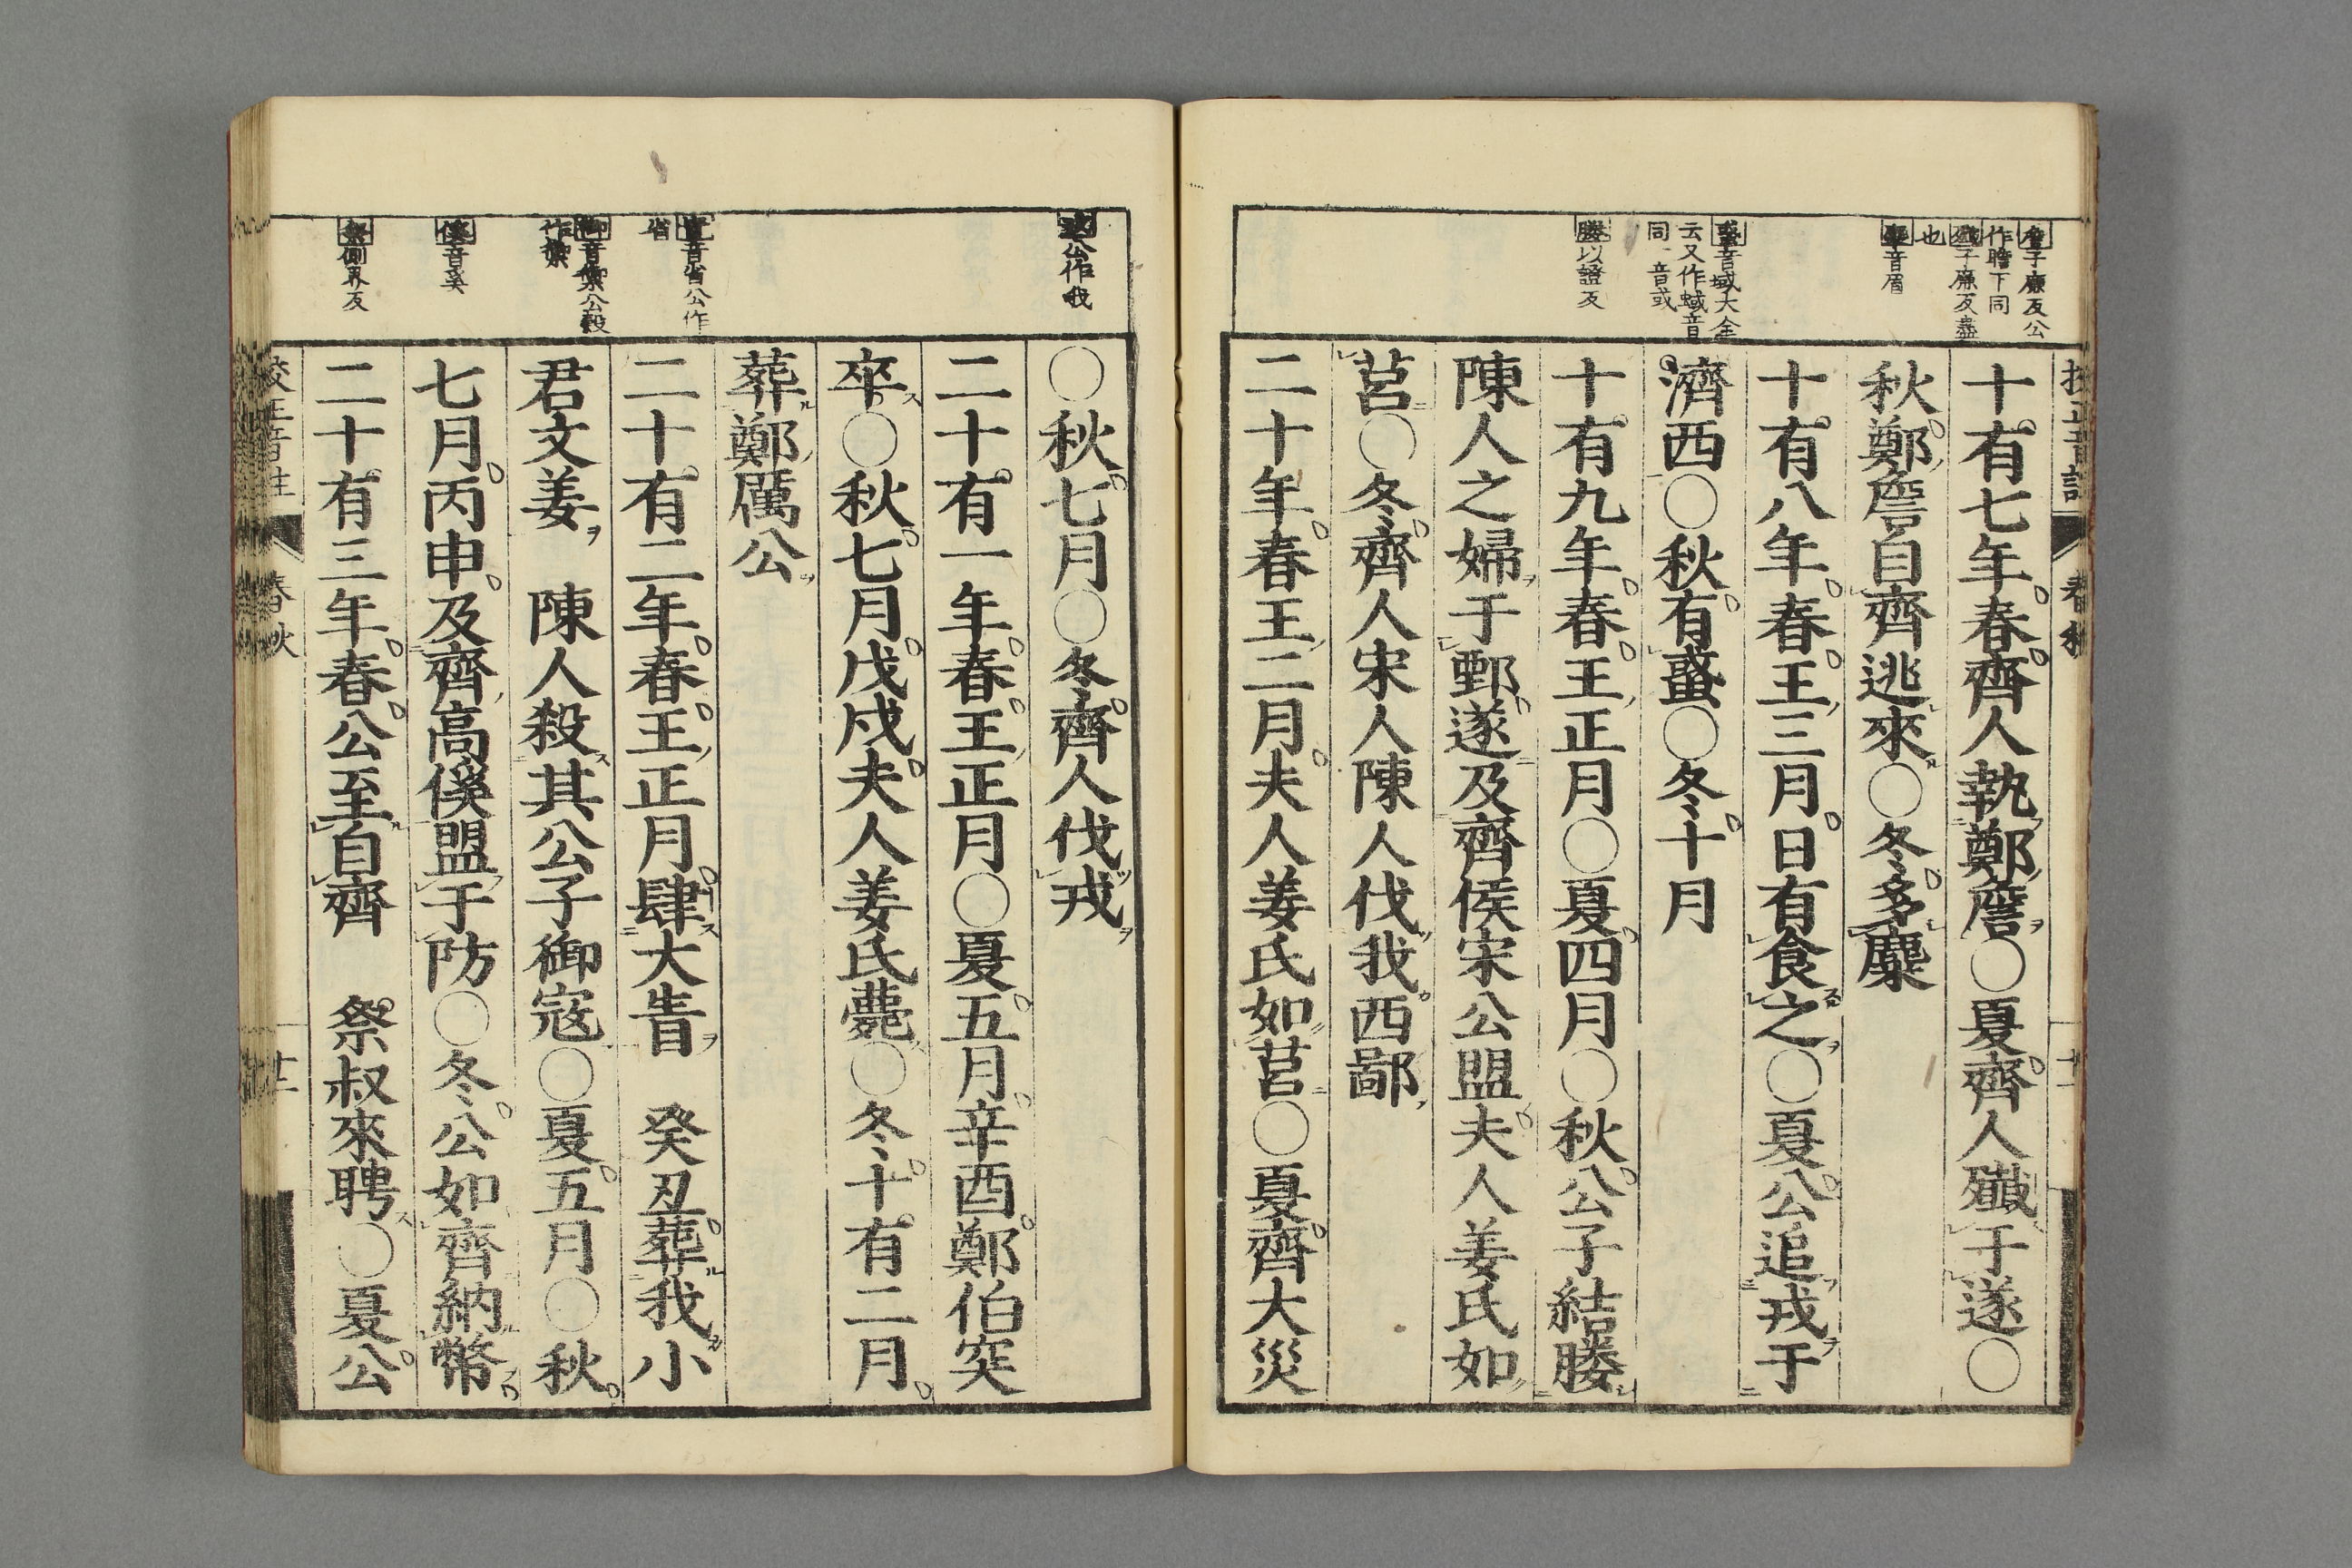 詹子廉反公
作瞻下同
殱子廉反盡
也
麋音眉
蜮音域大全
云又作蜮音
同一音或
媵以證反
十有七年春齊人執鄭詹○夏齊人殱于遂○
秋鄭詹自齊逃來○冬多麋
十有八年春王三月日有食之○夏公追戎于
濟西○秋有蜮○冬十月
十有九年春王正月○夏四月○秋公子結媵
陳人之婦于鄄遂及齊侯宋公盟夫人姜氏如
莒○冬齊人宋人陳人伐我西鄙
二十年春王二月夫人姜氏如莒○夏齊大災
戎公作我
眚音省公作
省
御音禦公穀
作禦
傒音奚
祭側界反
○秋七月○冬齊人伐戎
二十有一年春王正月○夏五月辛酉鄭伯突
卒○秋七月戊戌夫人姜氏薨○冬十有二月
葬鄭厲公
二十有二年春王正月肆大眚　癸丑葬我小
君文姜　陳人殺其公子御寇○夏五月○秋
七月丙申及齊高傒盟于防○冬公如齊納幣
二十有三年春公至自齊　祭叔來聘○夏公
校正音註
春秋